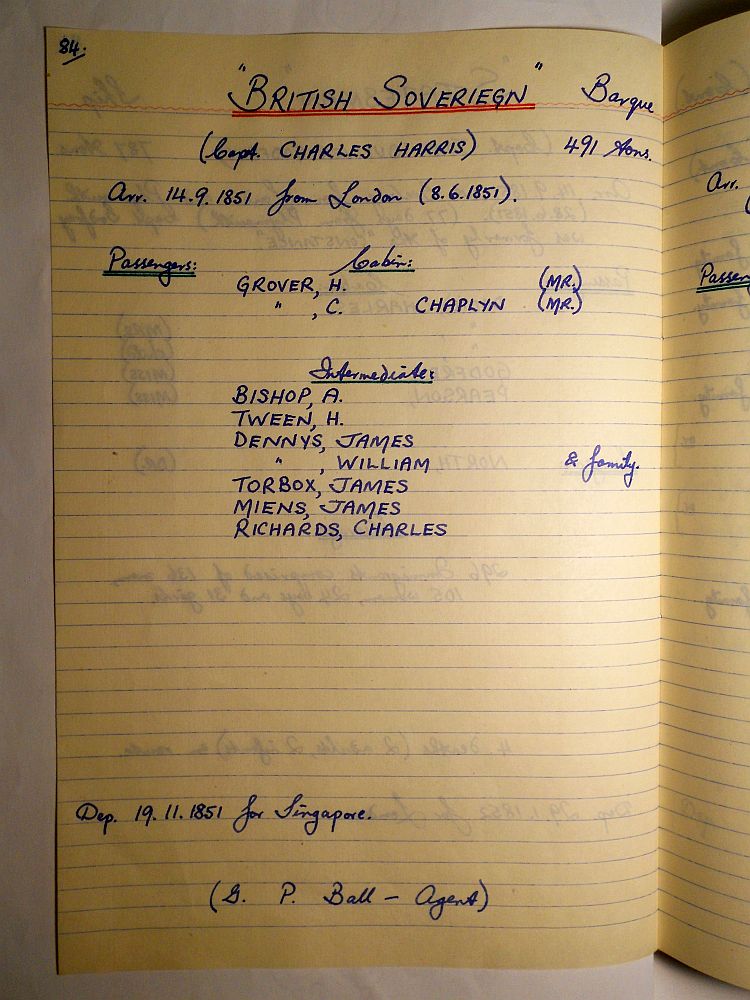 84.
"BRITISH SOVERIEGN" Barque
(Capt. CHARLES HARRIS) 491 tons.
Arr. 14.9.1851 from London (8.6.1851).
Passengers: Cabin:
GROVER, H. (MR.)
" , C. CHAPLYN (MR.)
Intermediate:
BISHOP, A.
TWEEN, H.
DENNYS, JAMES
" , WILLIAM & family.
TORBOX, JAMES
MIENS, JAMES
RICHARDS, CHARLES
Dep. 19.11.1851 for Singapore.
(G. P. Ball – Agent)
Arr.
(
Passen